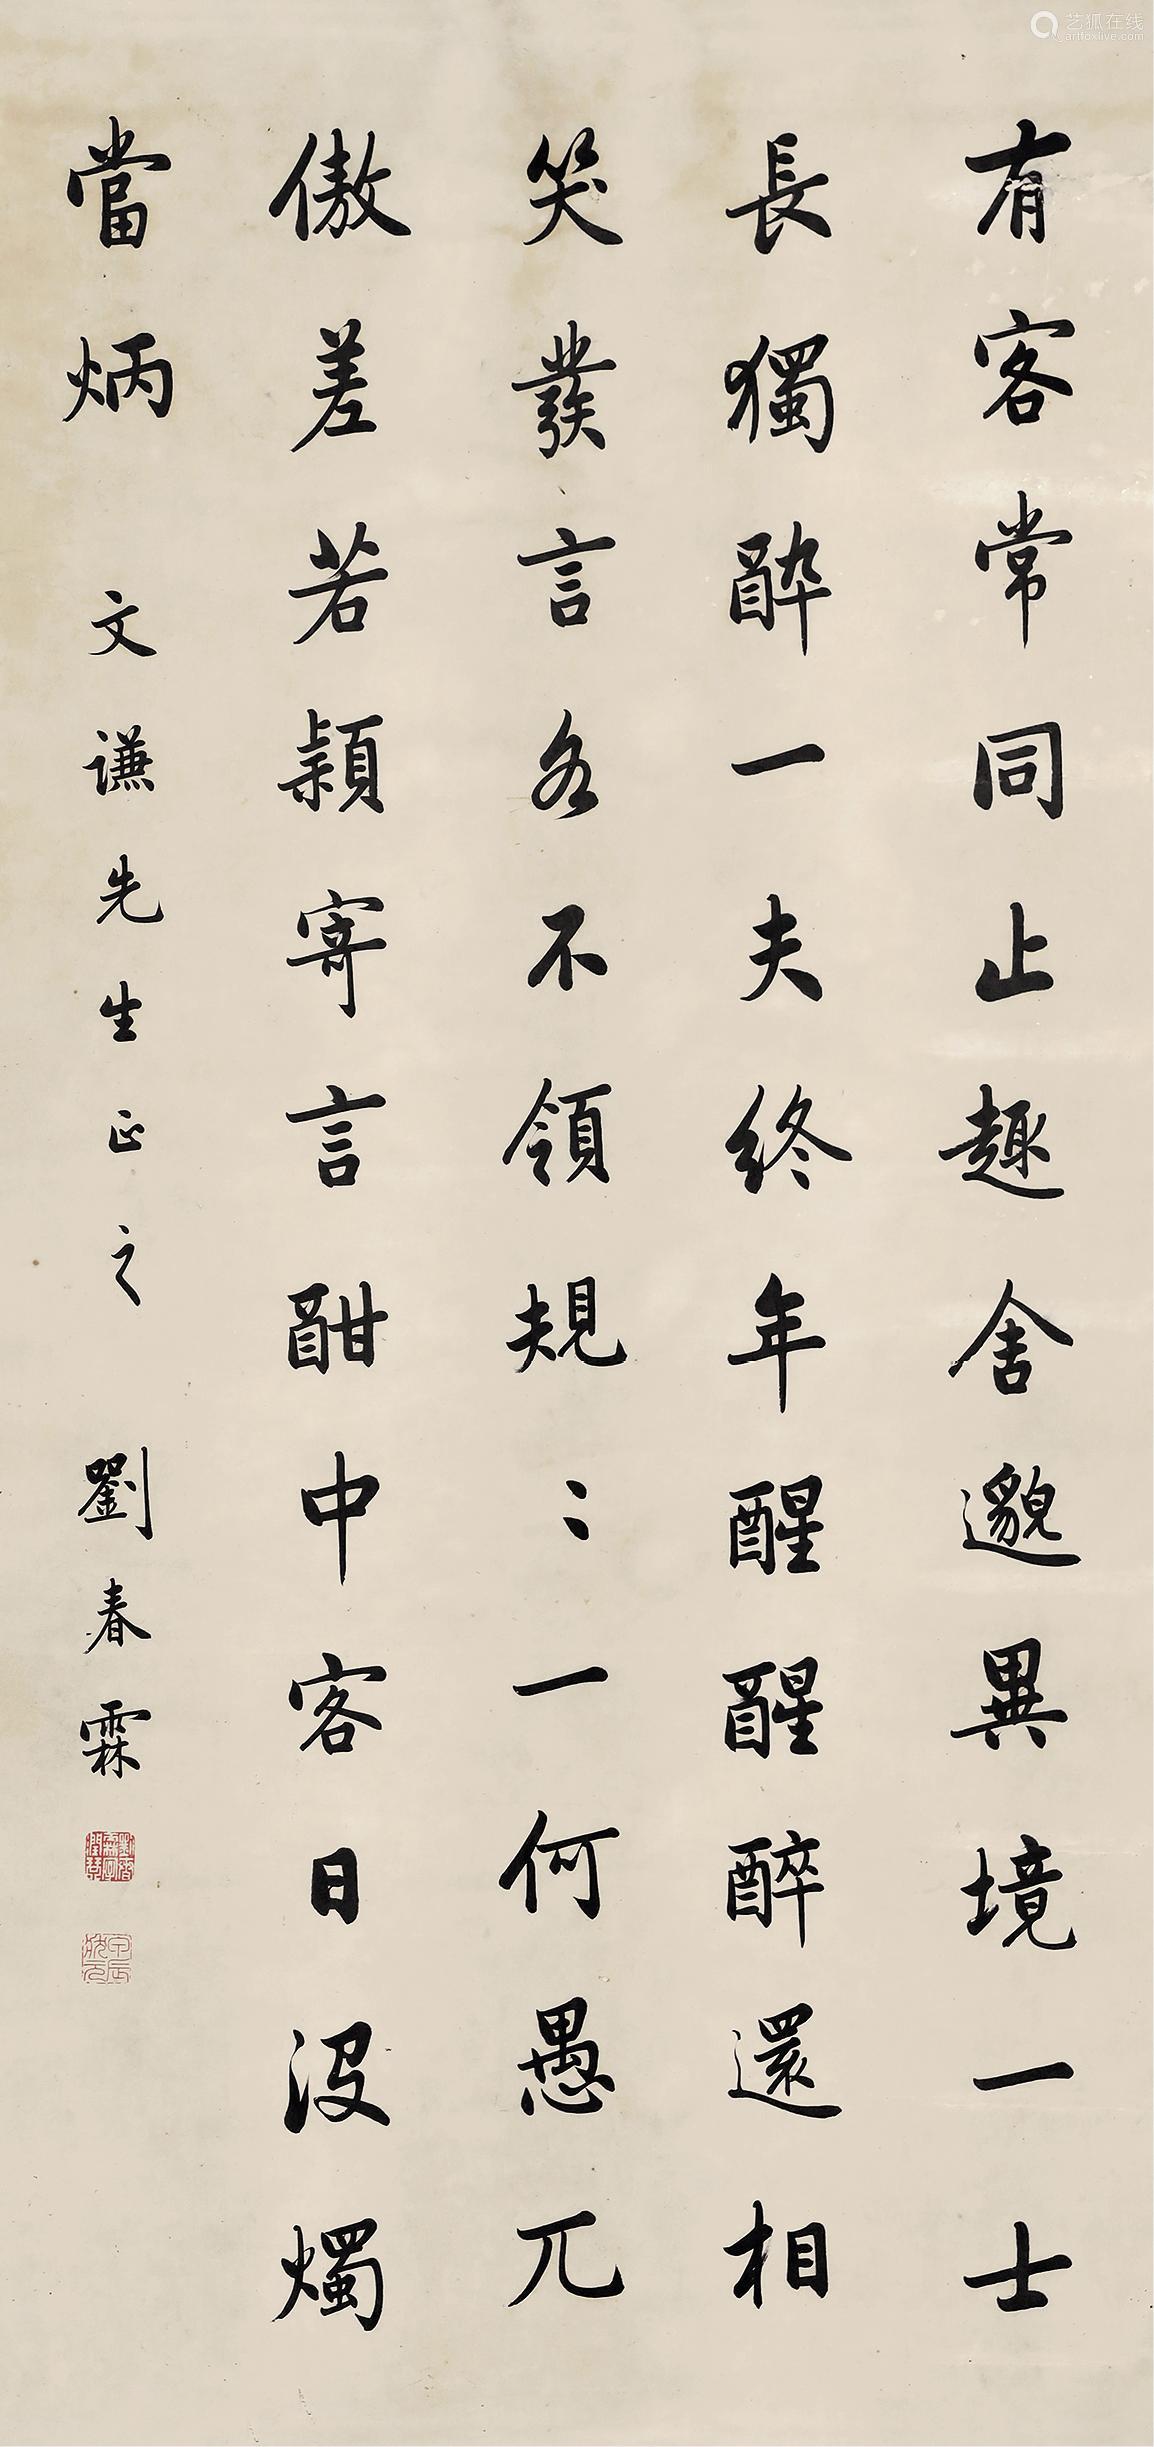 有客常同止趣舍邈異境一士
長獨醉一夫終年醒醒醉還相
笑發言各不領規〻一何愚兀
傲差若穎寄言酣中客日沒燭
當炳
文謙先生正之 劉春霖
艺狐在线
artfoxlive.com